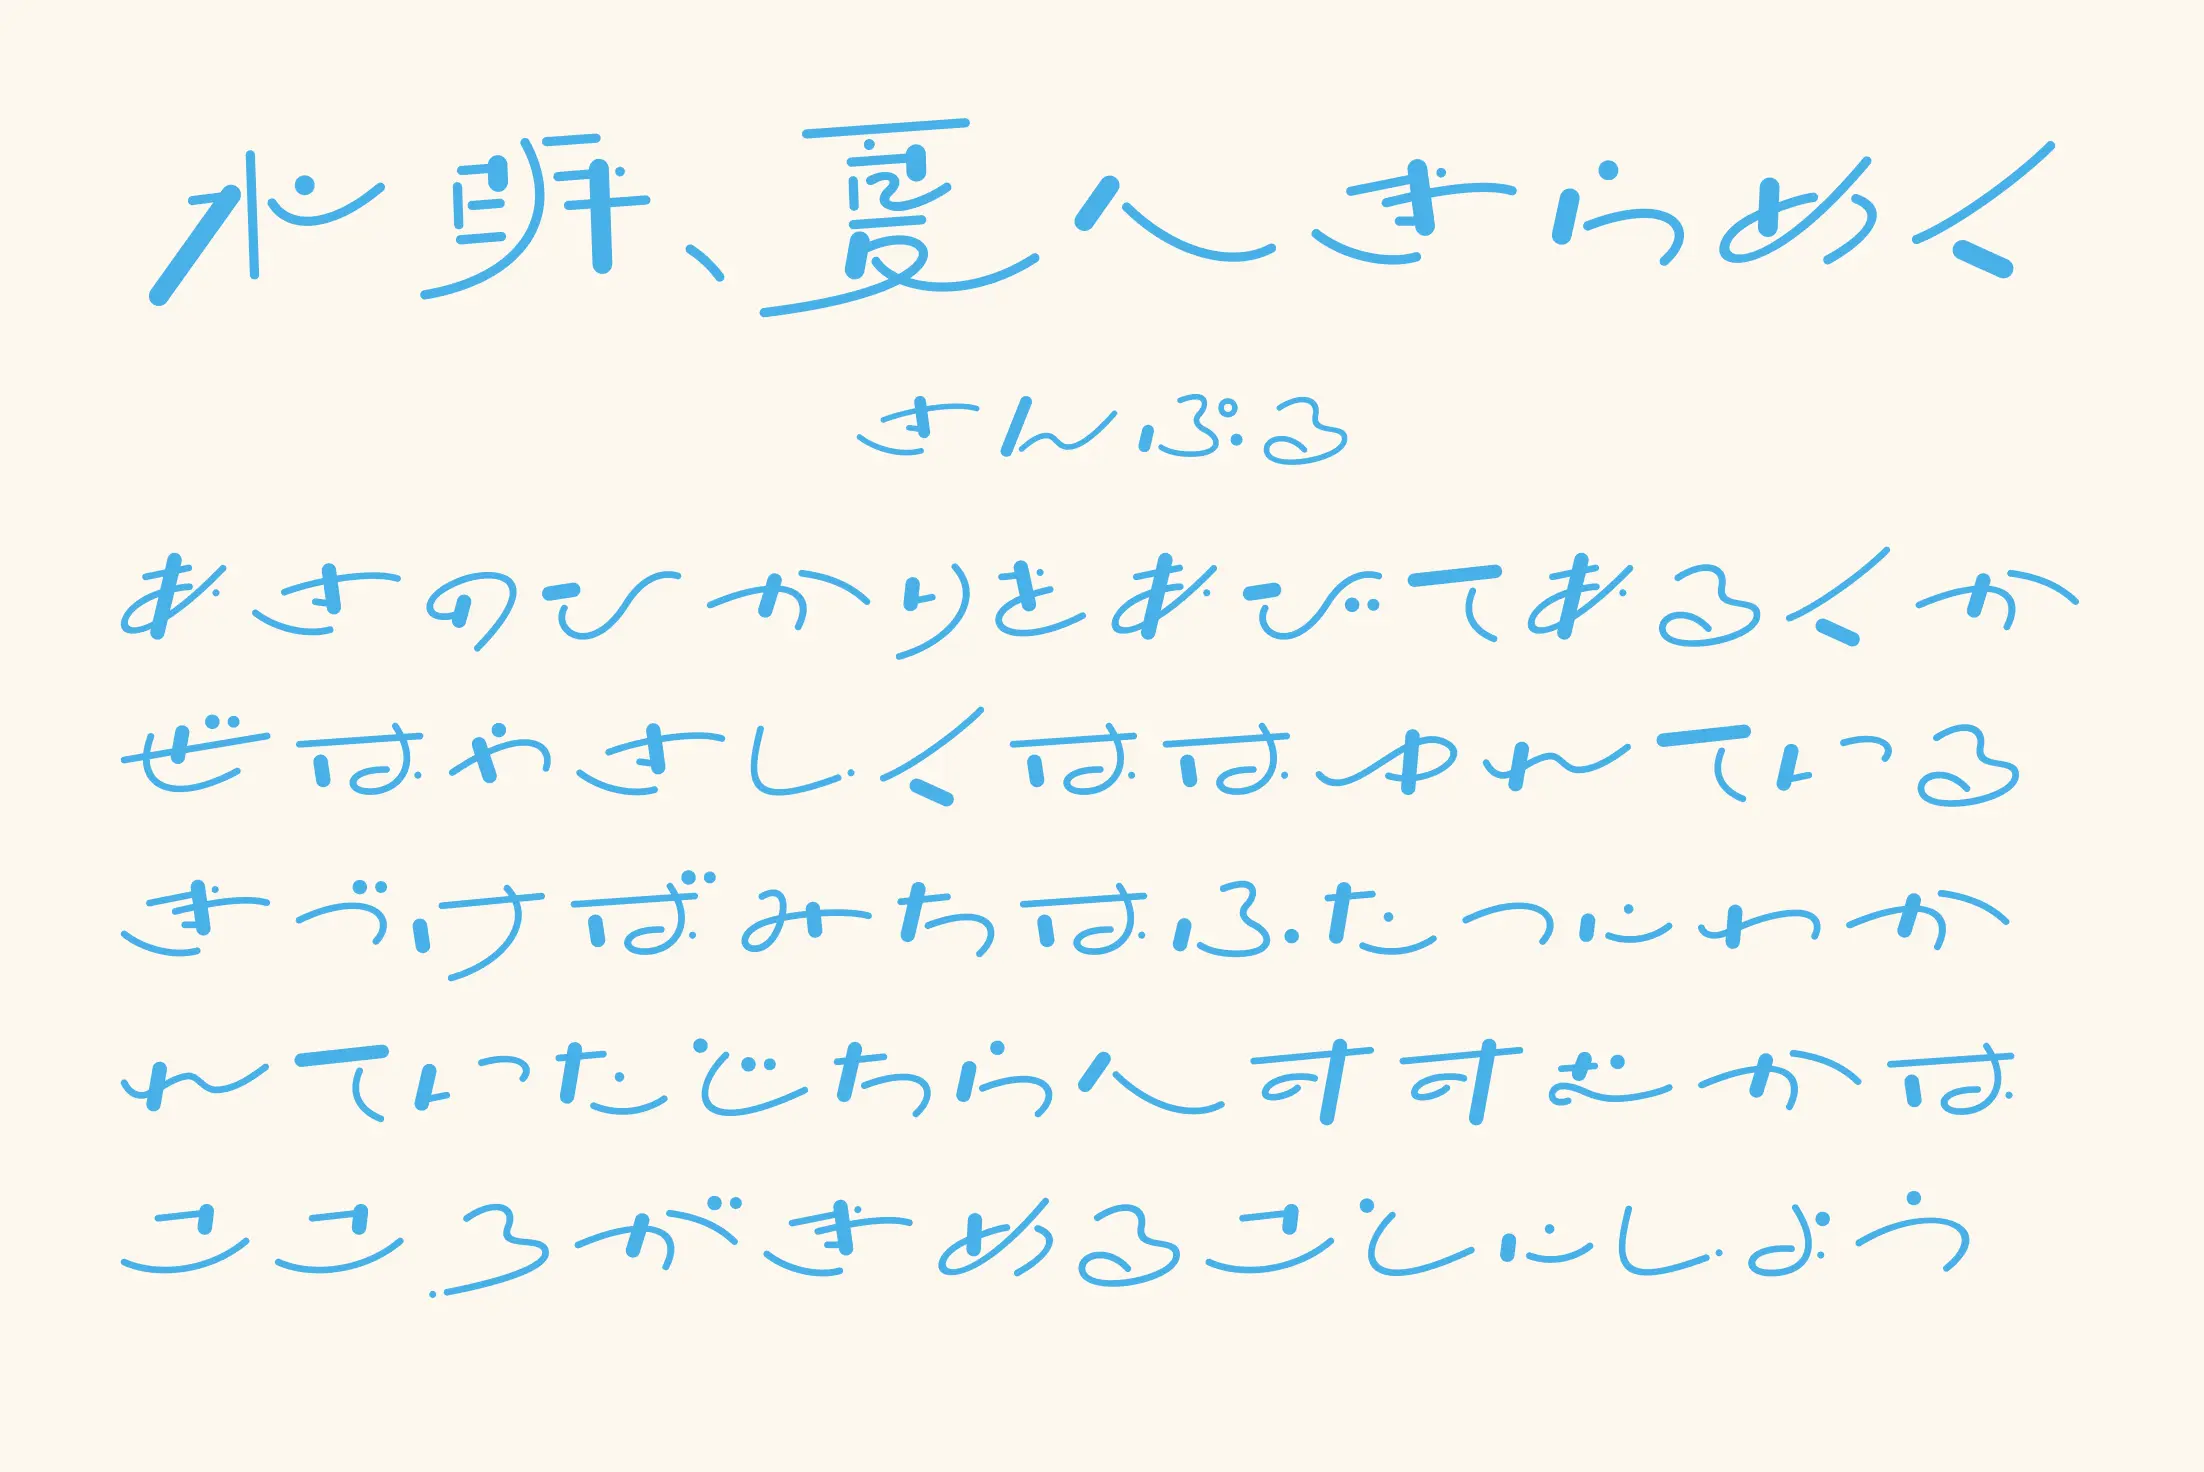 水、夏へきらめく
さんぷる
あさのひかりをあびてあるくか
ぜはやさしくははゆれている
きづけばみちはふたつにわか
れていったどちらへすすむかは
こころがきめることにしよう